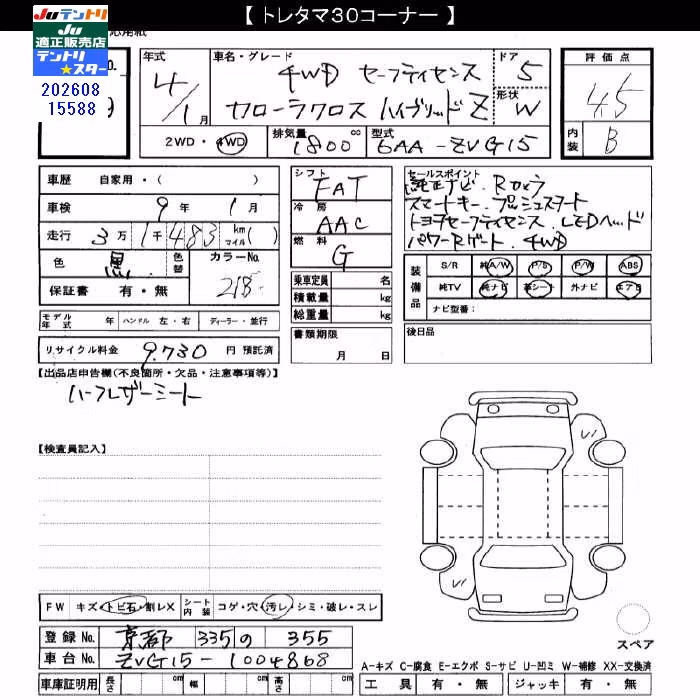 【 トレタマ30コーナー 】
Juテントリ
適正販売店
テントリ
★スター
202608
15588
年式 車名・グレード ドア 評価点
4/1月 4WD セーフティセンス 5 4.5
カローラクロス ハイブリッドZ 形状 W
2WD・4WD 排気量 1800 cc 型式 6AA-ZVG15 内装 B
車歴 自家用・( )
車検 9年 1月
走行 3万1千483 km マイル( )
色 黒 色替 カラーNo. 218
保証書 有・無
モデル年式 年 ハンドル 左・右 ディーラー・並行
リサイクル料金 9,730 円 預託済
シフト FAT
冷房 AAC
燃料 G
乗車定員 名
積載量 kg
総重量 kg
書類期限
月 日
セールスポイント
純正ナビ・Bカメラ
スマートキー・プッシュスタート
トヨタセーフティセンス・LEDヘッド
パワーRゲート・4WD
装備品 S/R 純A/W P/S P/W ABS
純TV 純ナビ 革シート 外ナビ エアB
ナビ型番:
後日品
【出品店申告欄(不良箇所・欠品・注意事項等)】
ハーフレザーシート
【検査員記入】
FW キズ・トビ石・割レX シート内装 コゲ・穴・汚レ・シミ・破レ・スレ
登録No. 京都 335 の 355
車台No. ZVG15-1004868
車庫証明用 長さ cm 幅 cm 高さ cm
スペア
A-キズ C-腐食 E-エクボ S-サビ U-凹ミ W-補修 XX-交換済
工具 有・無 ジャッキ 有・無